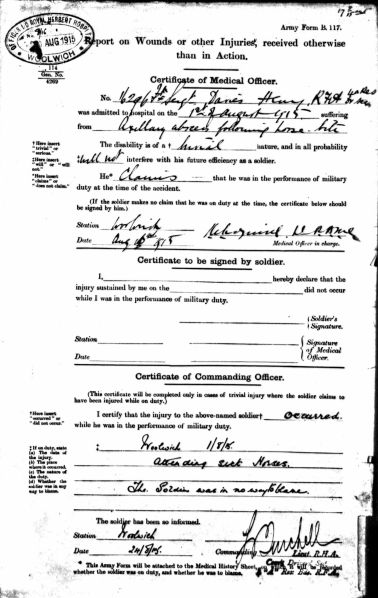 OFFICE I/C ROYAL HERBERT HOSPITAL
AUG 1915
WOOLWICH
Army Form B. 117.
Report on Wounds or other Injuries, received otherwise
than in Action.
114
Gen. No.
4269
Certificate of Medical Officer.
No. Sergt Davies Henry R.F.A.
was admitted to hospital on the August 1915 suffering
from Axillary abscess following horse bite
*† Here insert "trivial" or "serious."
The disability is of a † trivial nature, and in all probability
‡ Here insert "will" or "will not."
‡ will not interfere with his future efficiency as a soldier.
* Here insert "claims" or "does not claim."
He* Claims that he was in the performance of military
duty at the time of the accident.
(If the soldier makes no claim that he was on duty at the time, the certificate below should
be signed by him.)
Station Woolwich
Date Aug 1915
Medical Officer in charge.
Certificate to be signed by soldier.
I, hereby declare that the
injury sustained by me on the did not occur
while I was in the performance of military duty.
Soldier's Signature.
Station
Date
Signature of Medical Officer.
Certificate of Commanding Officer.
(This certificate will be completed only in cases of trivial injury where the soldier claims to
have been injured while on duty.)
† Here insert "occurred" or "did not occur."
I certify that the injury to the above-named soldier† occurred
while he was in the performance of military duty.
‡ If on duty, state
(a) The date of the injury.
(b) The place where it occurred.
(c) The nature of the duty.
(d) Whether the soldier was in any way to blame.
‡ Woolwich 1/8/15.
attending sick Horses.
The Soldier was in no way to blame.
The soldier has been so informed.
Station Woolwich
Date 24/8/15.
Commanding Lieut. R.H.A.
* This Army Form will be attached to the Medical History Sheet, on which it will be recorded
whether the soldier was on duty, and whether he was to blame.